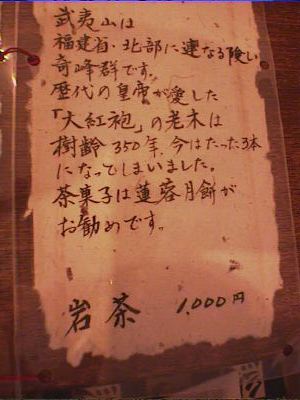 武夷山は
福建省・北部に連なる険い
奇峰群です。
歴代の皇帝が愛した
「大紅袍」の老木は
樹齢350年、今はたった3本
になってしまいました。
茶菓子は蓮蓉月餅が
お勧めです。
岩茶 1,000円